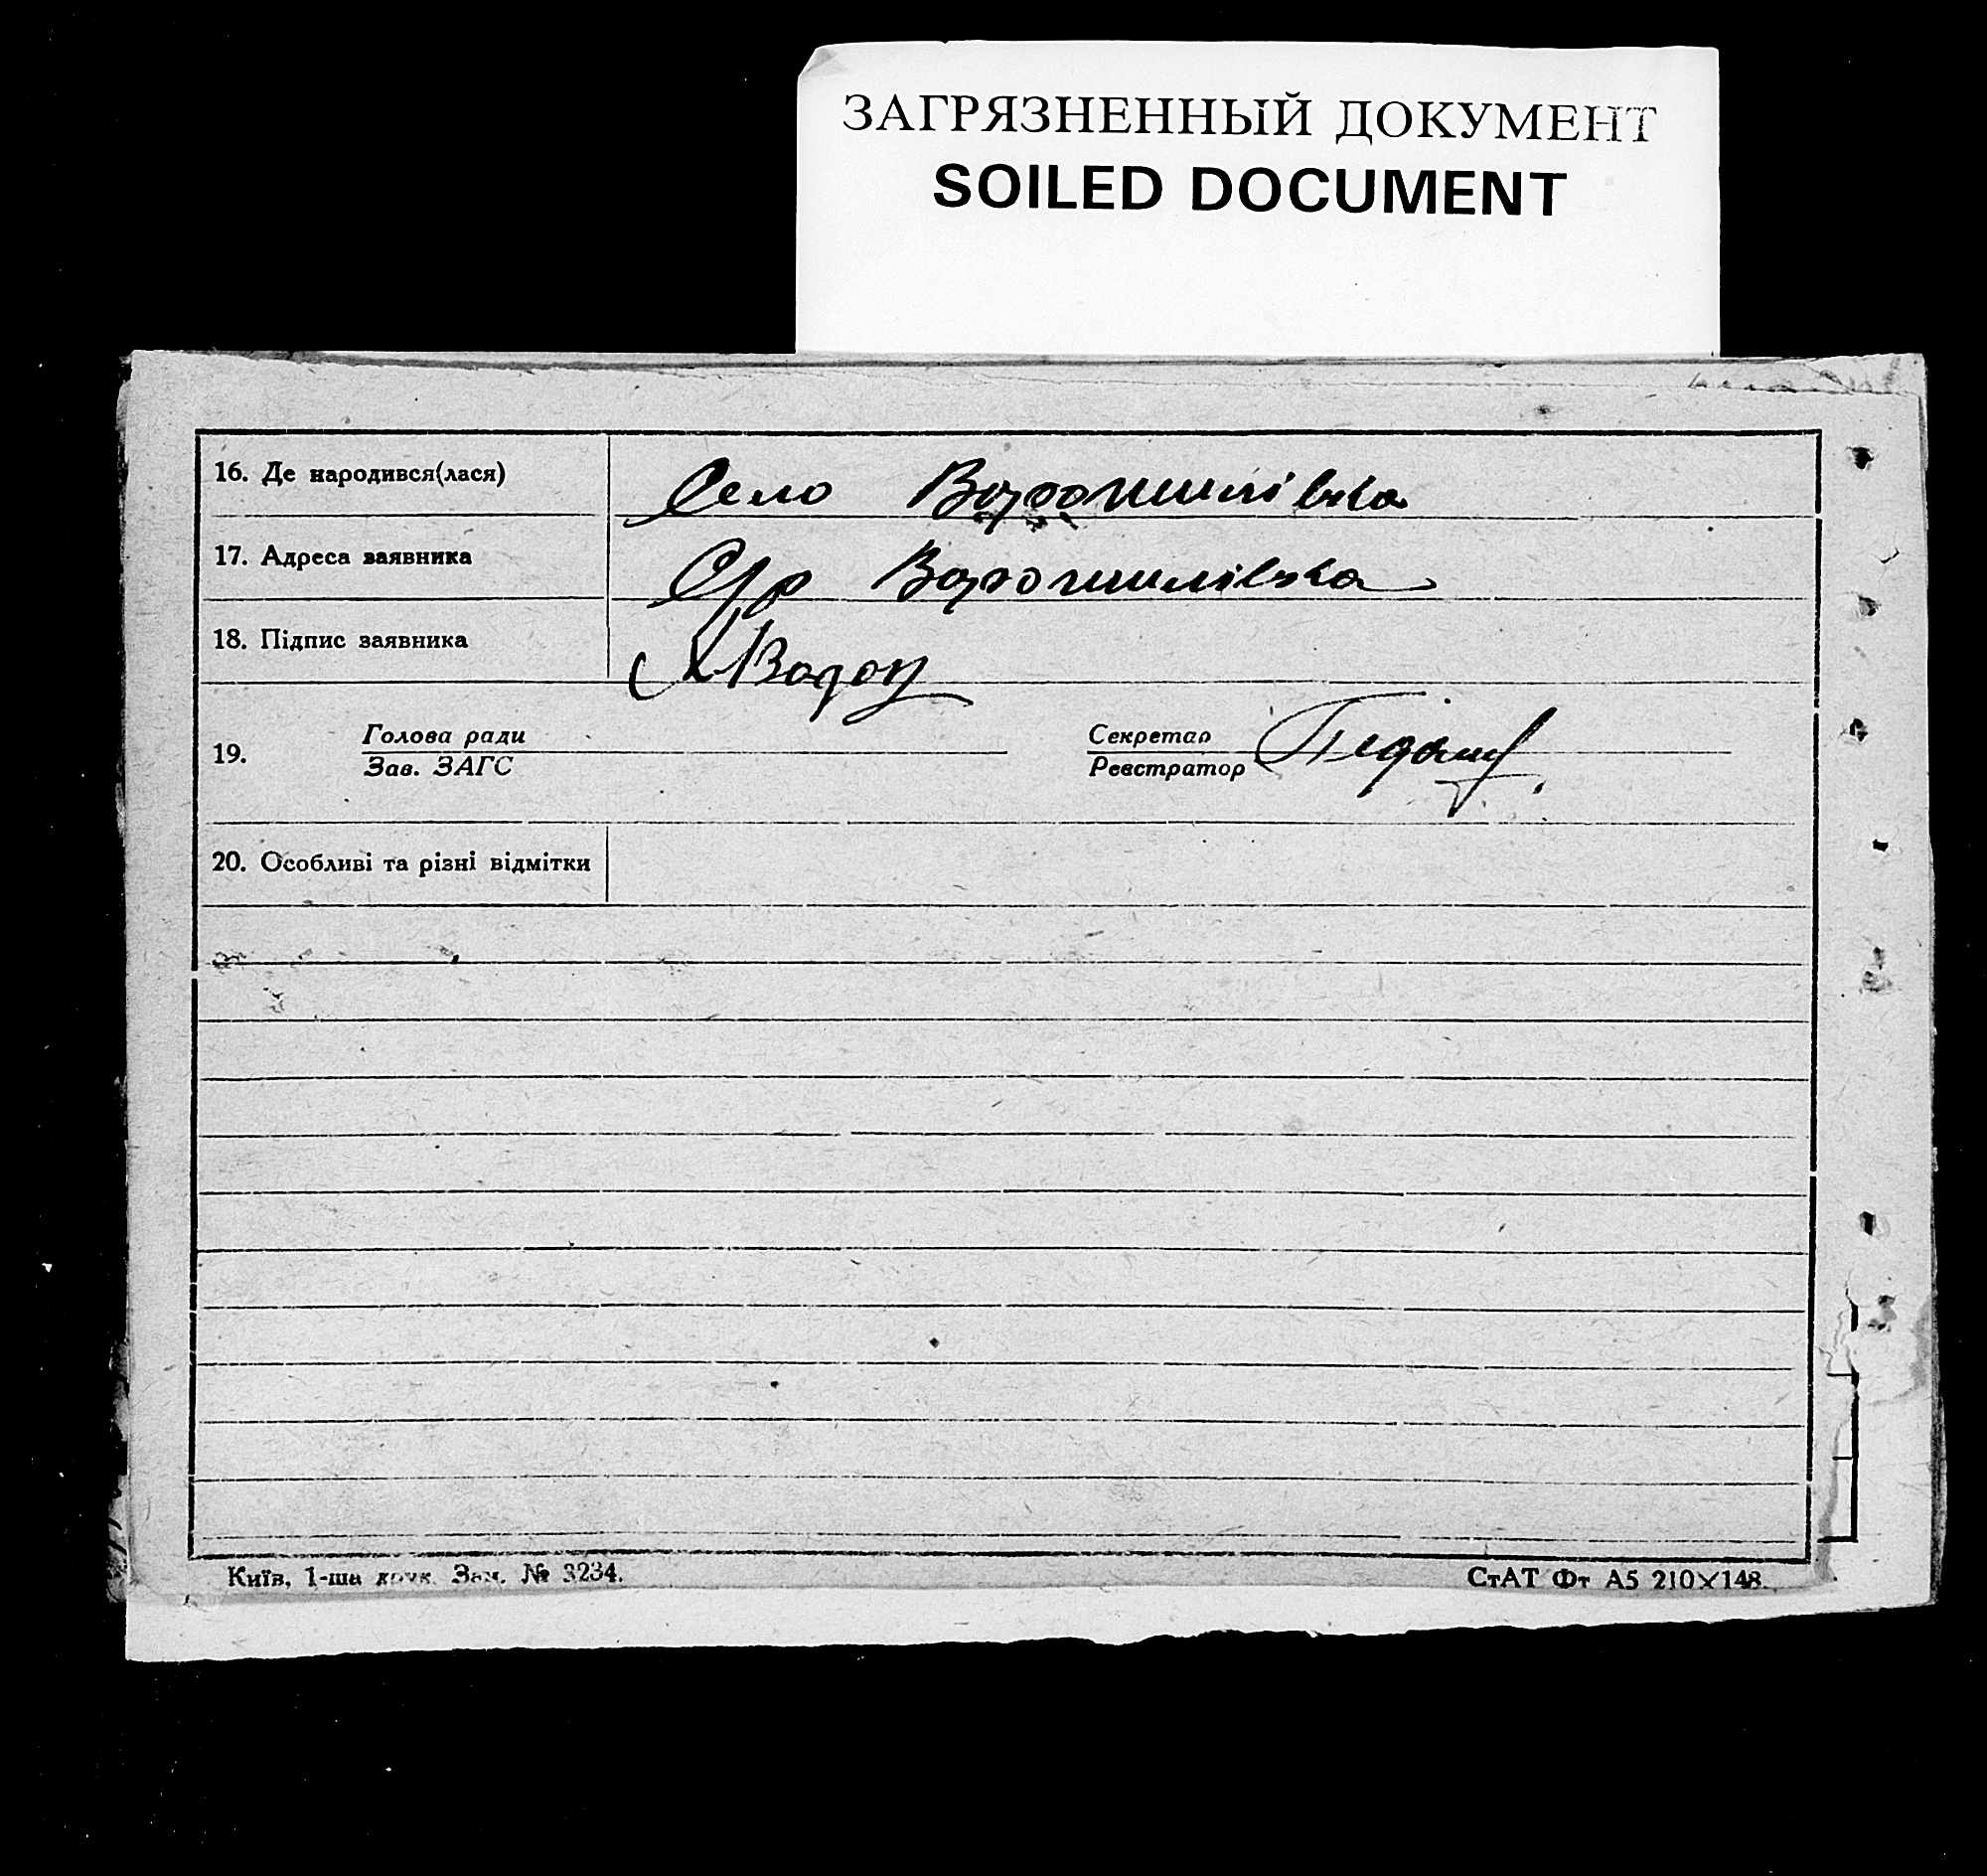 ЗАГРЯЗНЕННЫЙ ДОКУМЕНТ
SOILED DOCUMENT
16. Де народився(лася) Село Ворошилівка
17. Адреса заявника С/р Ворошилівка
18. Підпис заявника
19. Голова ради
Зав. ЗАГС
Секретар
Реєстратор
20. Особливі та різні відмітки
Київ, 1-ша друк. Зам. № 3234.
СтАТ Фт А5 210×148.